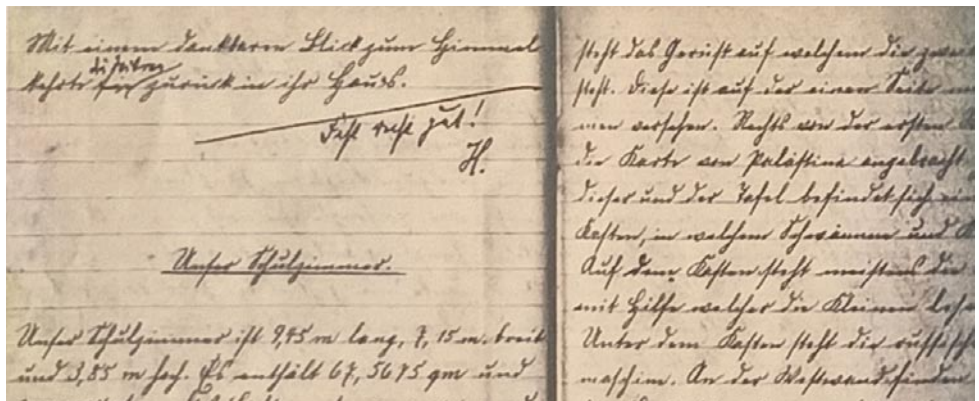 Mit einem dankbaren Blick zum Himmel
kehrte zurück in ihr Haus.
Fast recht gut!
H.
Unser Schulzimmer.
Unser Schulzimmer ist 9,45 m lang, 7,15 m. breit
und 3,85 m hoch. Es enthält 67,5675 qm und
steht das Gerüst auf welchem die
steht. Diese ist auf der einen Seite
nien versehen. Rechts von der ersten
die Karte von Palästina angebracht
dieser und der Tafel befindet sich ein
Kasten, in welchem Schwämme und
Auf dem Kasten steht meistens die
mit Hilfe welcher die Kleinen lese
Unter dem Kasten steht die russisch
maschine. An der Westwand finden